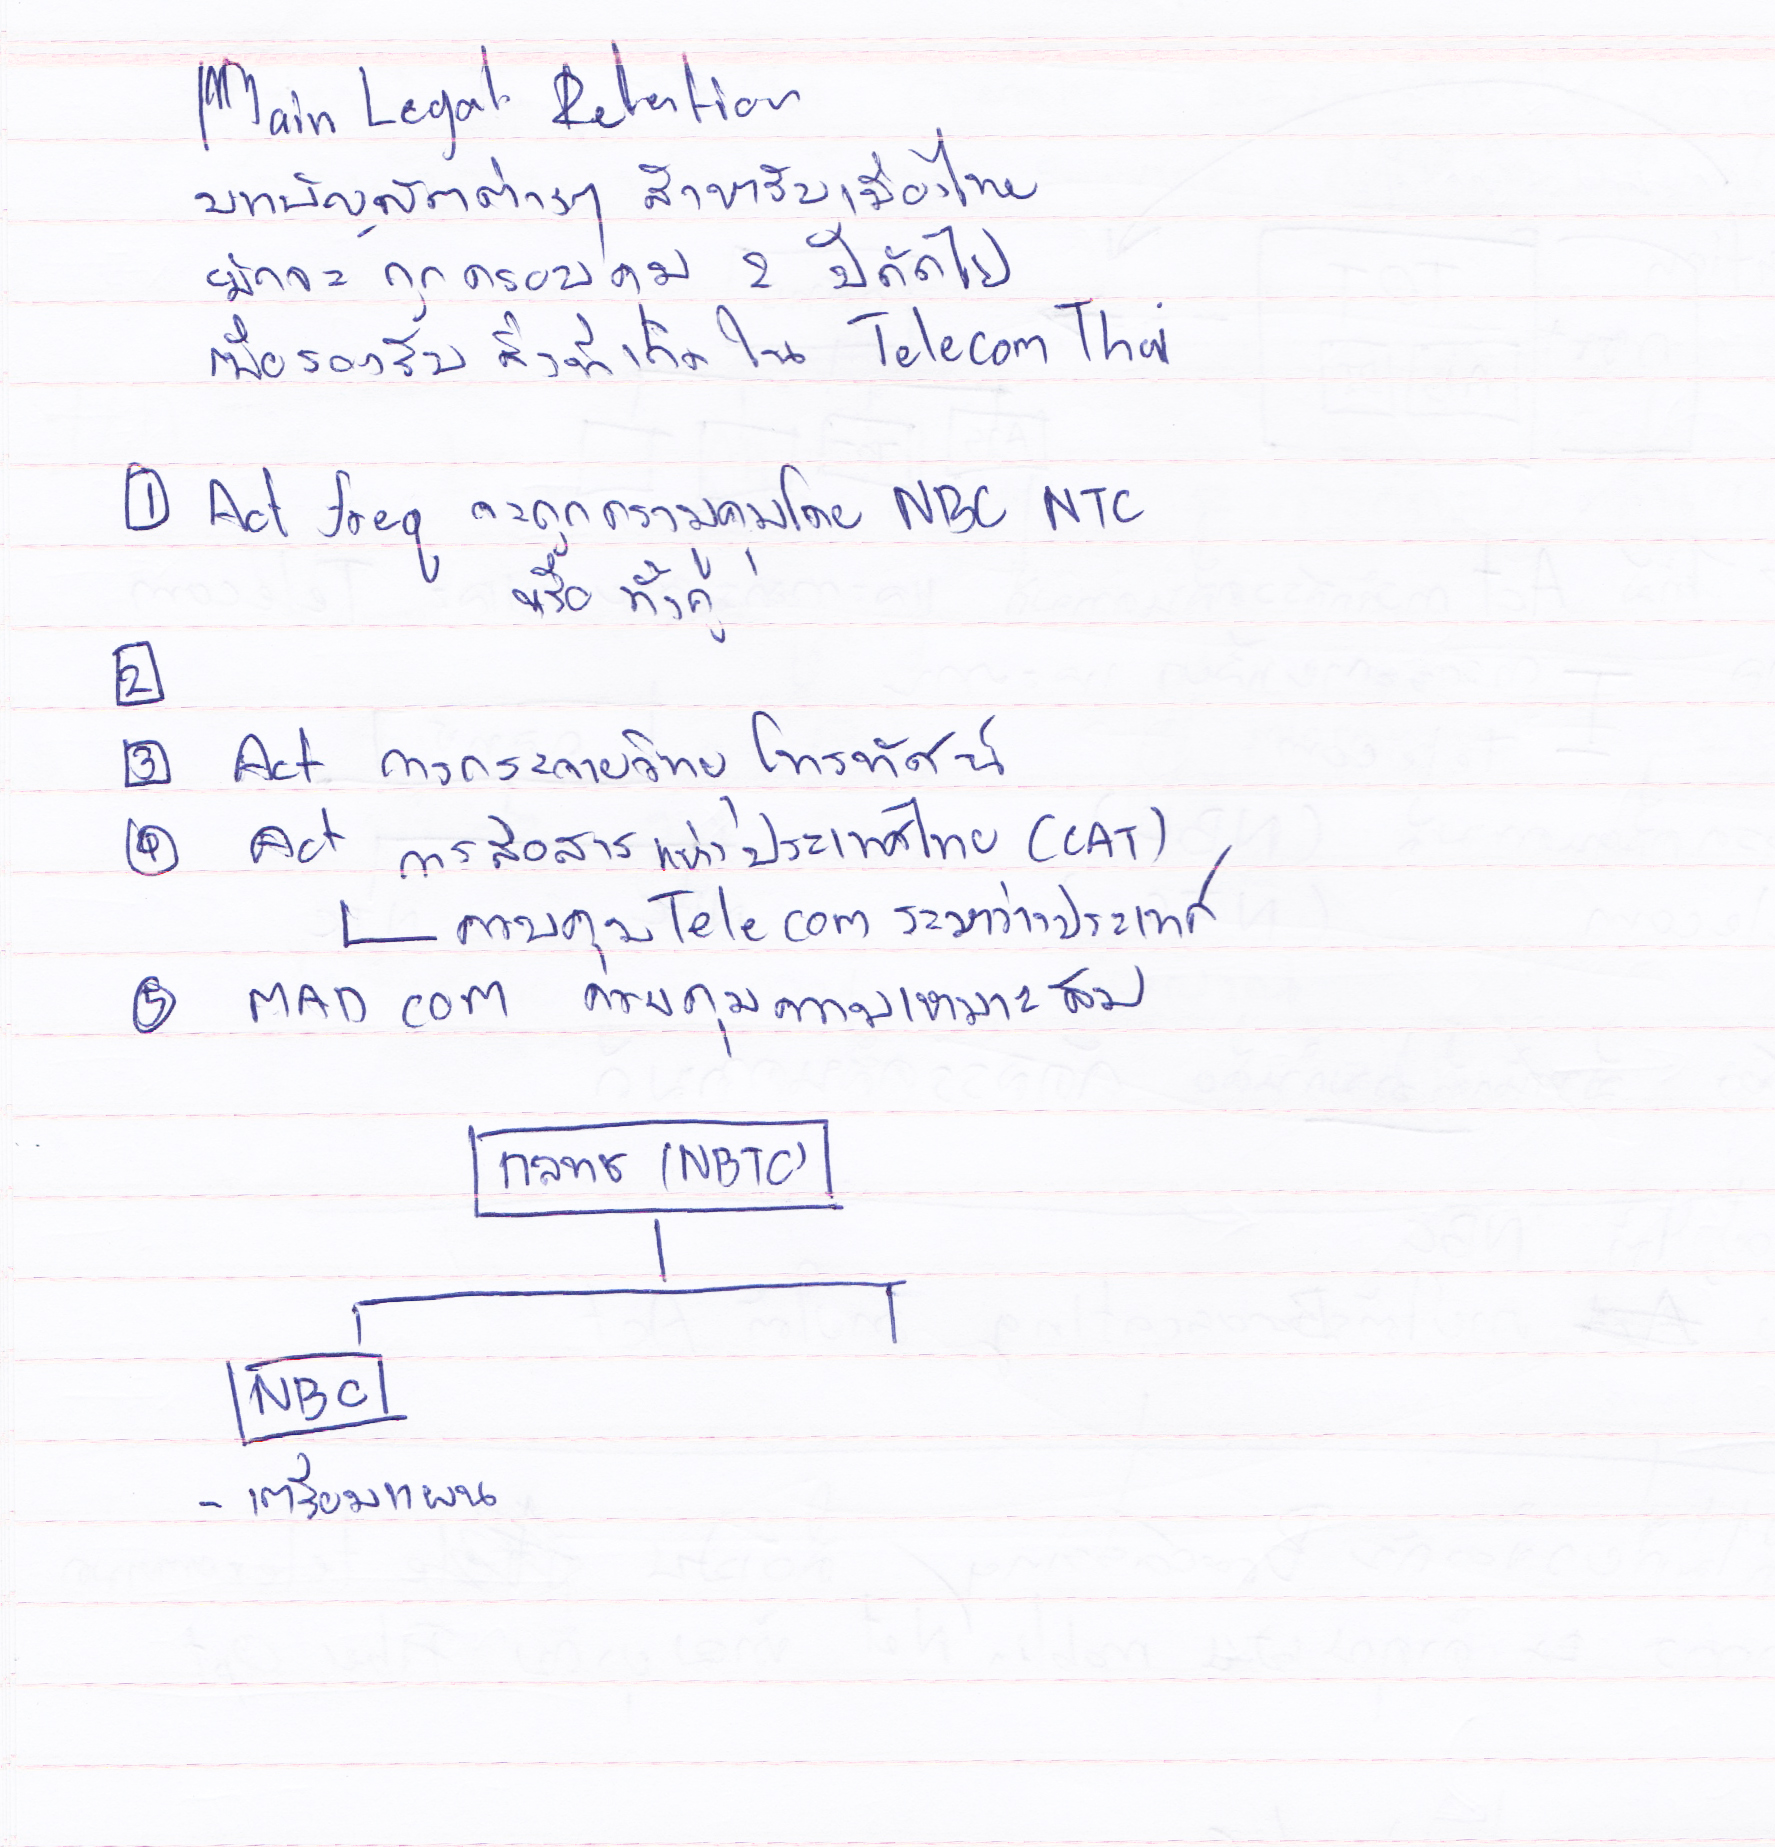 Main Legal Retention
บทบัญญัติต่างๆ สำหรับเมืองไทย
มักจะ ถูกครอบคุม 2 ปีถัดไป
เพื่อรองรับ สิ่งที่เกิด ใน Telecom Thai
1 Act freq จะถูกควบคุมโดย NBC NTC
หรือ ทั้งคู่
2
3 Act การกระจายวิทยุ โทรทัศน์
4 Act การสื่อสารแห่งประเทศไทย (CAT)
ควบคุม Telecom ระหว่างประเทศ
5 MAD COM ควบคุมความเหมาะสม
กสทช (NBTC)
NBC
- เตรียมแผน